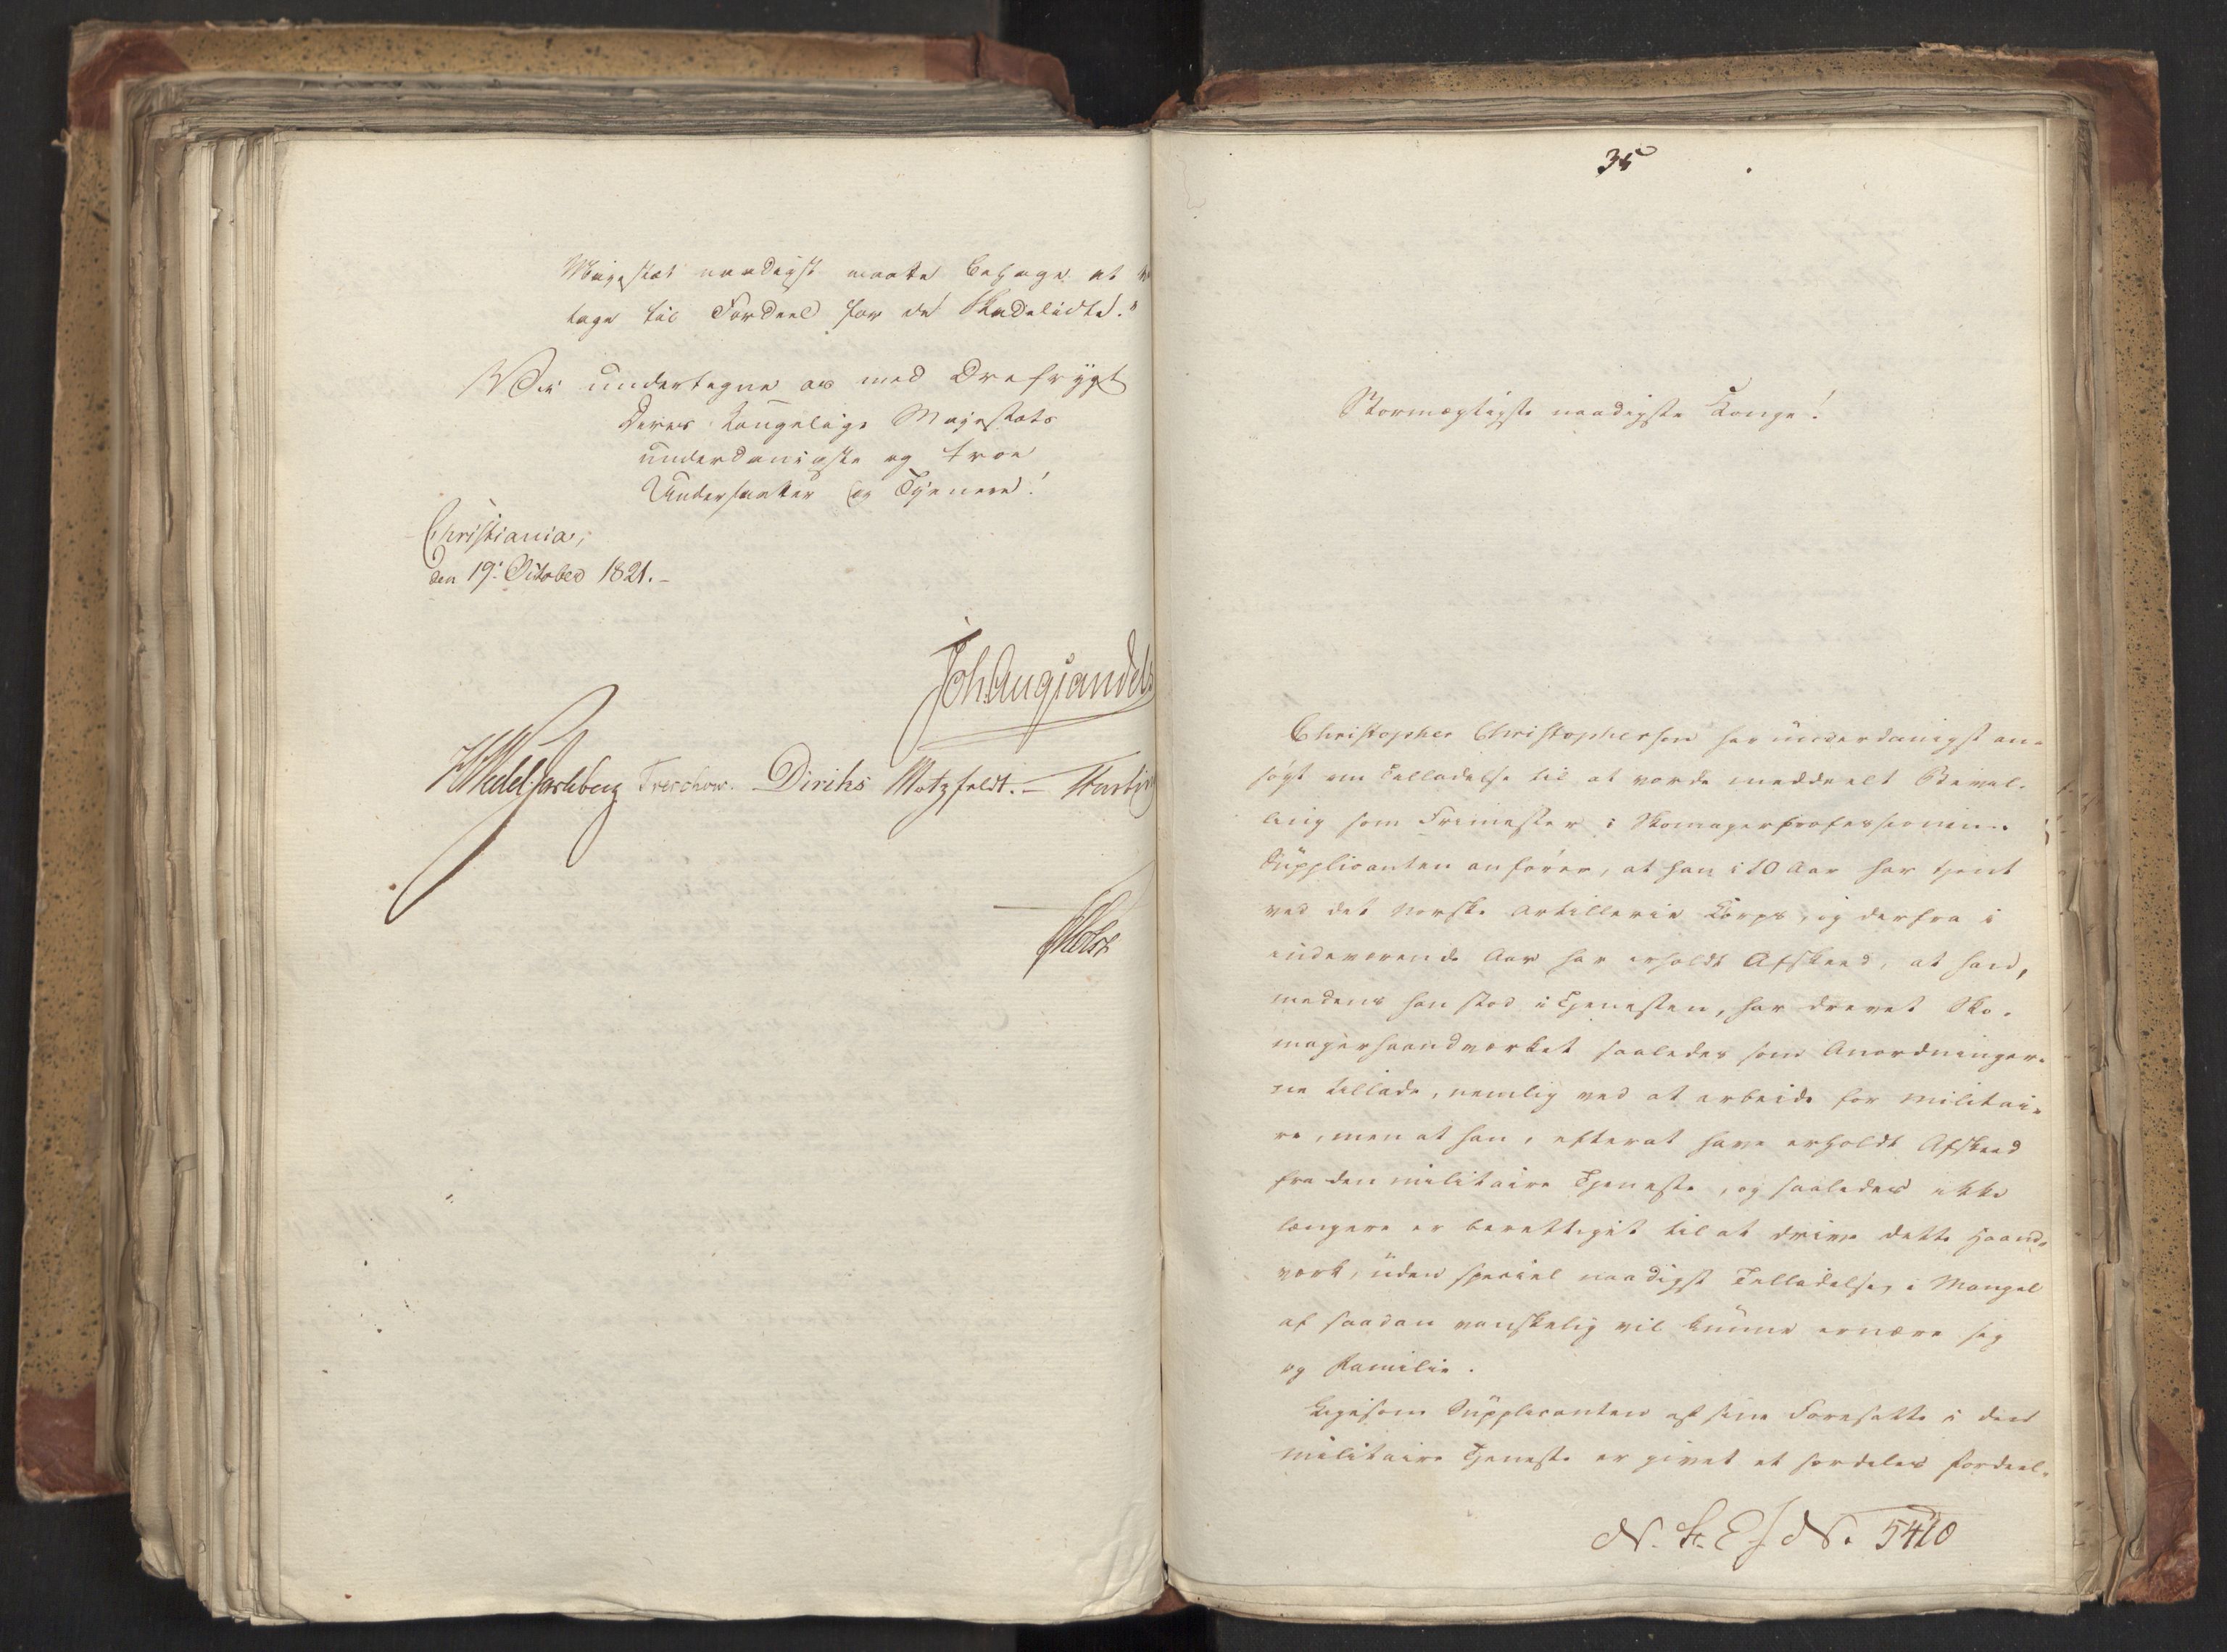 Majestæt naadigst maatte behage at
tage til Fordeel for de Skadelidte."
Vi undertegne os med Ærefrygt
Deres Kongelige Majestæts
underdanigste og troe
Undersaatter og Tjenere!
Christiania,
den 19: October 1821.-
Joh. Aug Sandels
HWedel Jarlsberg Treschow. Diriks Motzfeldt.- Fasting
Holst
35
Stormægtigste naadigste Konge!
Christopher Christophersen har underdanigst an-
søgt om Tilladelse til at vorde meddeelt Bevil-
ling som Frimester i Skomagerprofessionen.
Supplicanten anfører, at han i 10 Aar har tjent
ved det norske Artillerie Corps, og derfra i
indeværende Aar har erholdt Afskeed, at han,
medens han stod i Tjenesten, har drevet Sko-
magerhaandværket saaledes som Anordninger-
ne tillade, nemlig ved at arbeide for Militai-
re, men at han, efterat have erholdt Afskeed
fra den militaire Tjeneste, og saaledes ikke
længere er berettiget til at drive dette Haand-
værk, uden speciel naadigst Tilladelse, i Mangel
af saadan vanskelig vil kunne ernære sig
og Familie.
Ligesom Supplicanten af sine Foresatte i den
militaire Tjeneste er givet et særdeles fordeel-
N. 5410